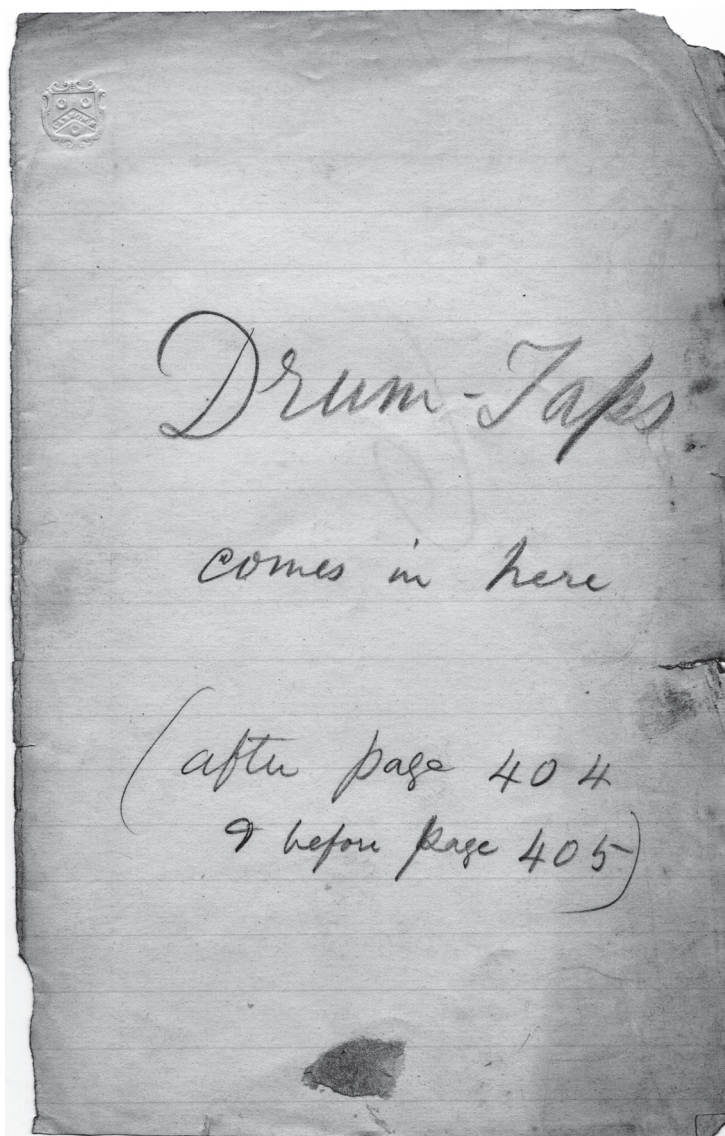 Drum-Taps
comes in here
(after page 404
& before page 405)